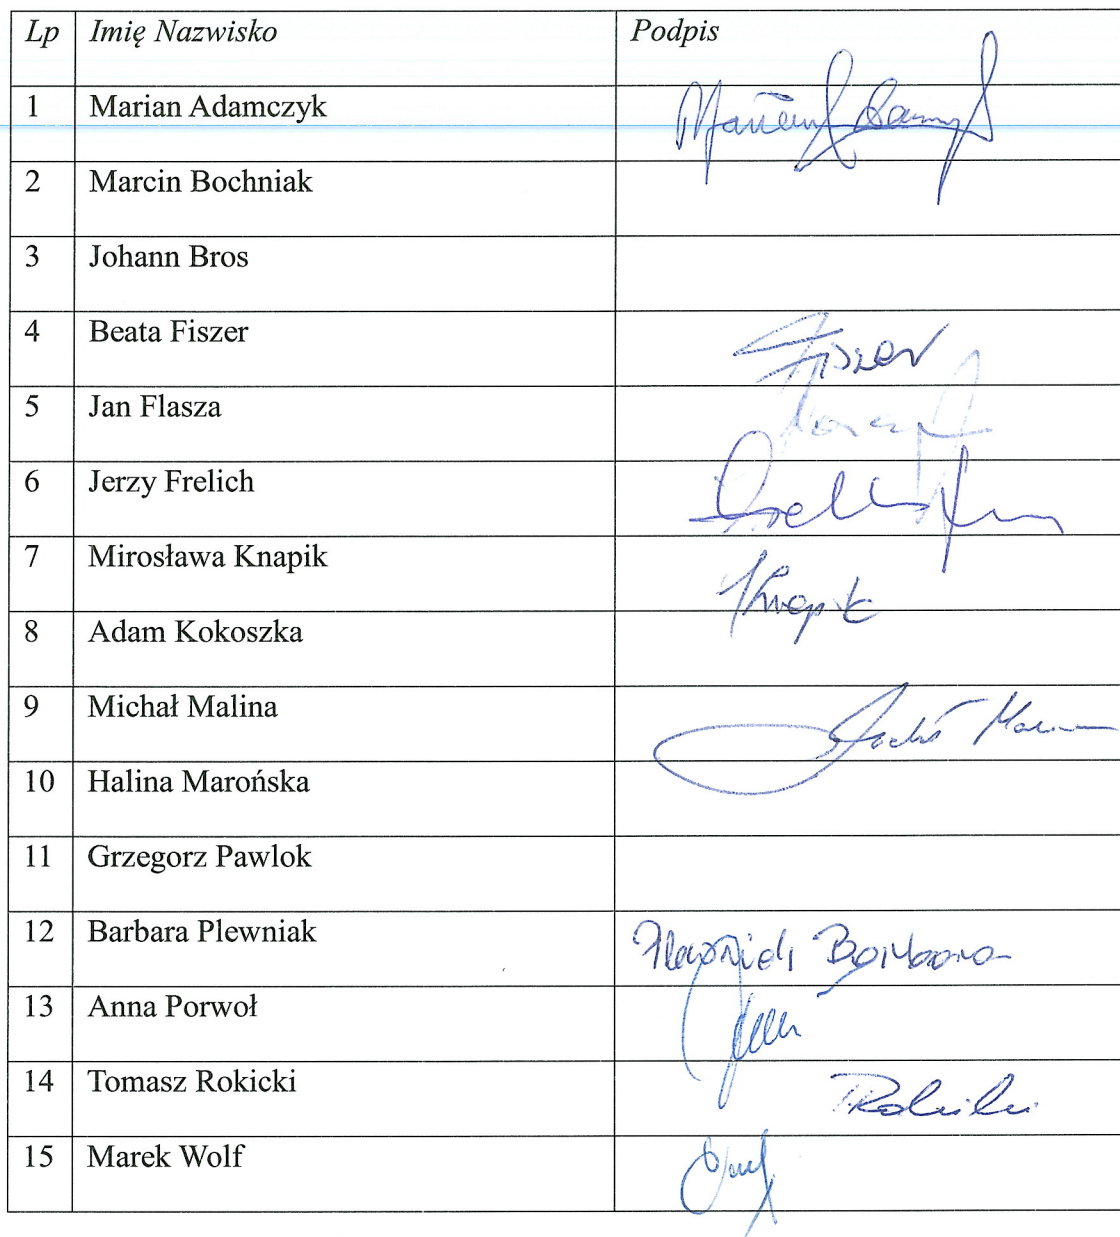 Lp Imię Nazwisko Podpis
1 Marian Adamczyk Marian
2 Marcin Bochniak
3 Johann Bros
4 Beata Fiszer Fiszer
5 Jan Flasza
6 Jerzy Frelich
7 Mirosława Knapik Knapik
8 Adam Kokoszka
9 Michał Malina
10 Halina Marońska
11 Grzegorz Pawlok
12 Barbara Plewniak Plewniak Barbara
13 Anna Porwoł
14 Tomasz Rokicki Rokicki
15 Marek Wolf